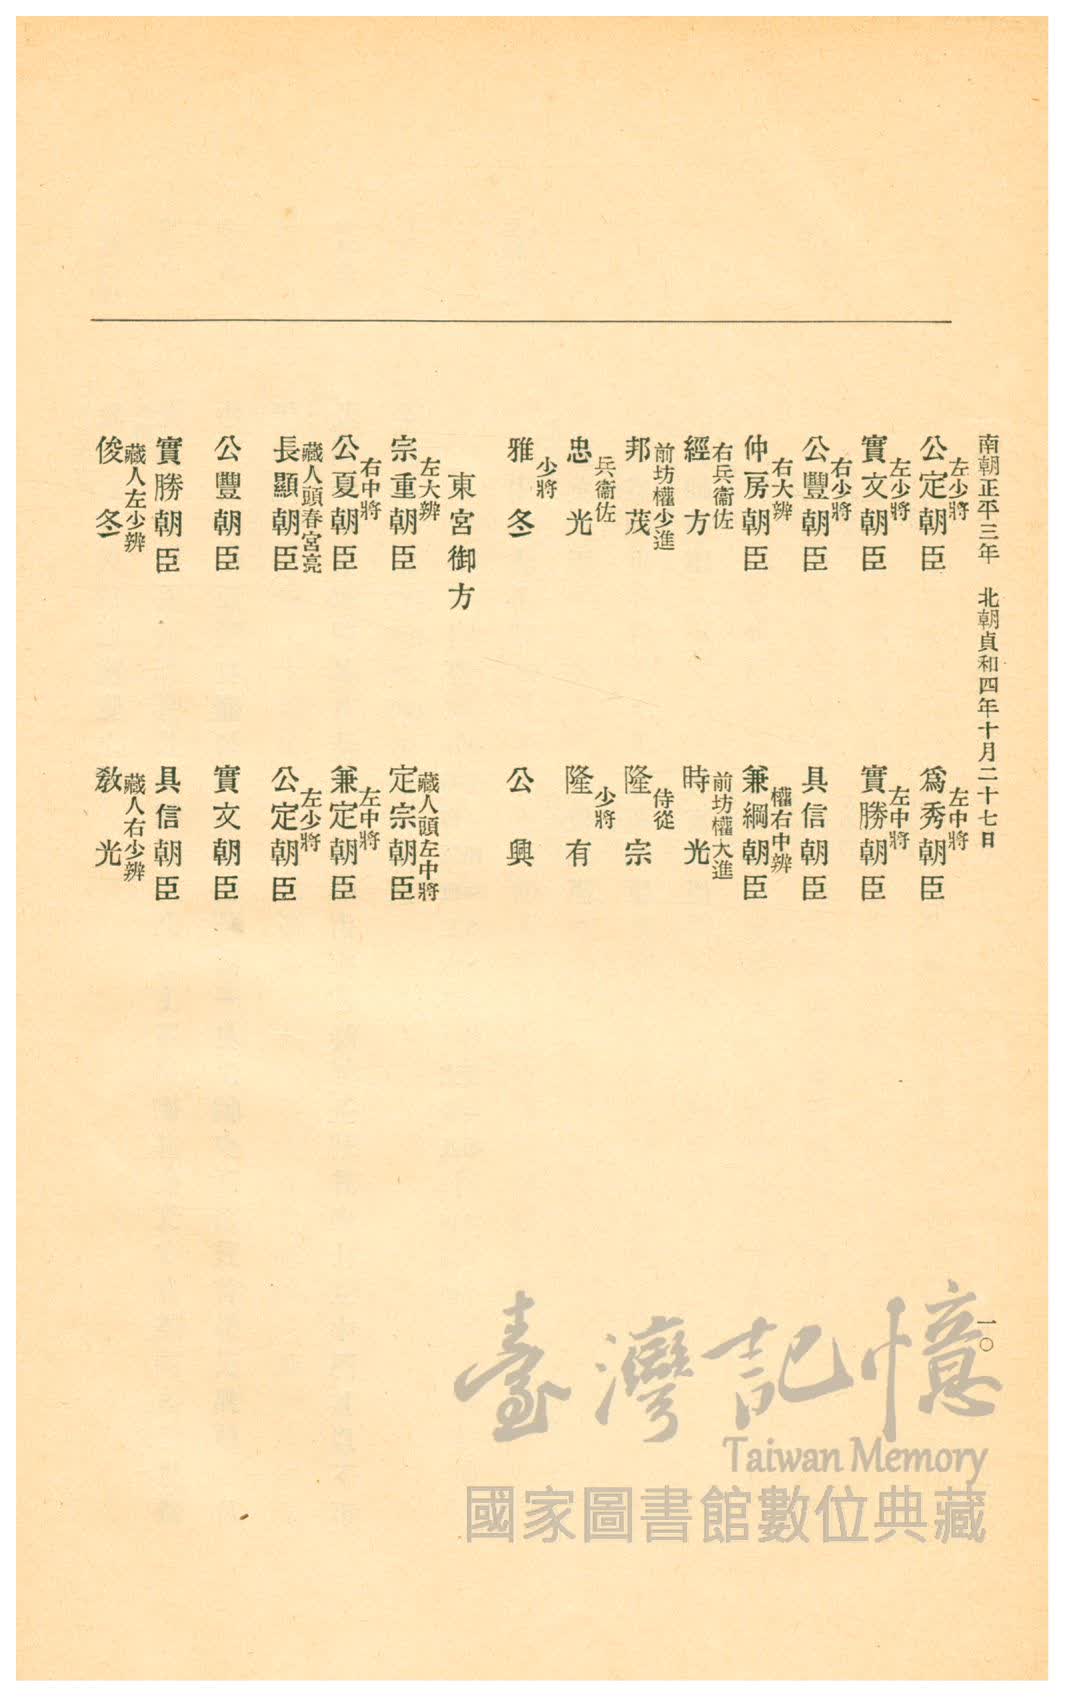 南朝正平三年　北朝貞和四年十月二十七日
一〇
左少將
公定朝臣
左中將
爲秀朝臣
左少將
實文朝臣
左中將
實勝朝臣
右少將
公豐朝臣
具信朝臣
右大辨
仲房朝臣
權右中辨
兼綱朝臣
右兵衞佐
經方
前坊權大進
時光
前坊權少進
邦茂
侍從
隆宗
兵衞佐
忠光
少將
隆有
少將
雅冬
公興
東宮御方
左大辨
宗重朝臣
藏人頭左中將
定宗朝臣
右中將
公夏朝臣
左中將
兼定朝臣
藏人頭春宮亮
長顯朝臣
左少將
公定朝臣
公豐朝臣
實文朝臣
實勝朝臣
具信朝臣
藏人左少辨
俊冬
藏人右少辨
敎光
臺灣記憶
Taiwan Memory
國家圖書館數位典藏